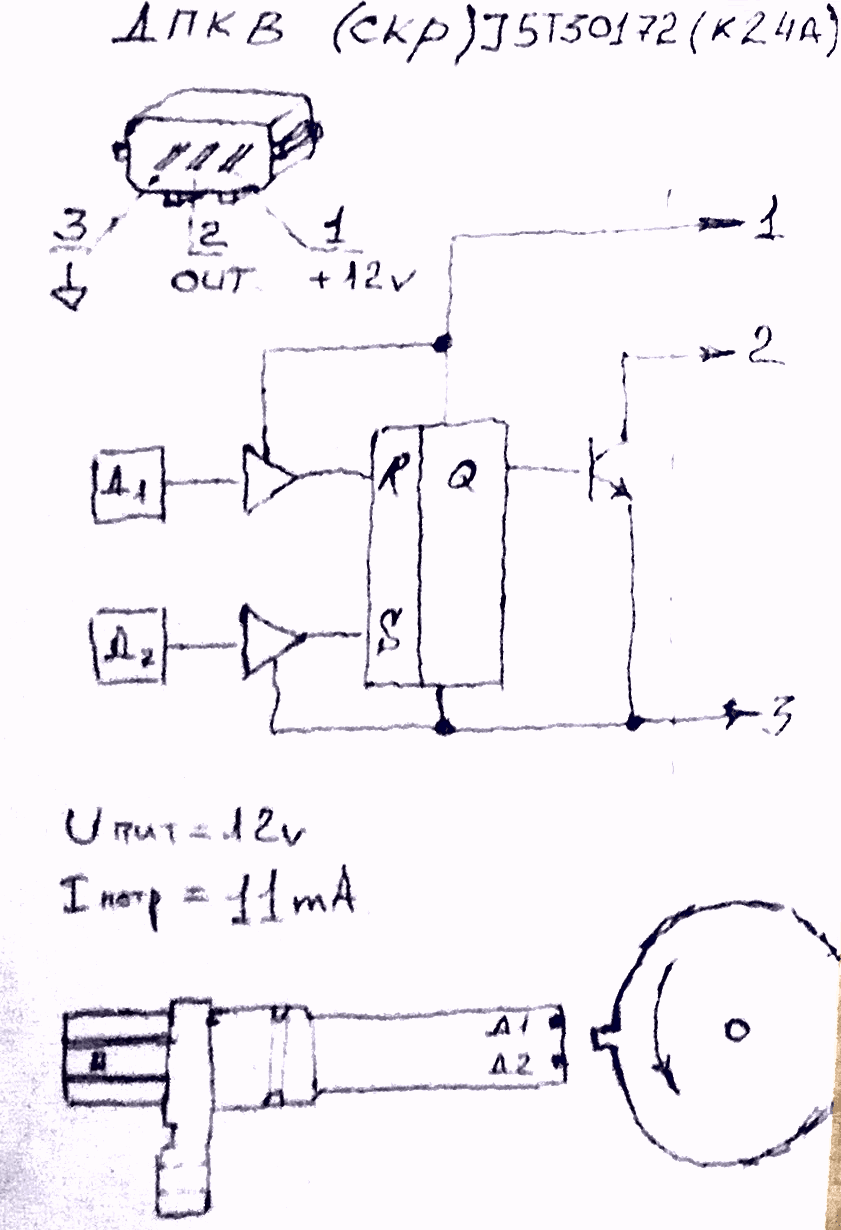 ДПКВ (СКР) J5T30172 (К24А)
3 2 1
OUT +12v
1
2
Д1 R Q
Д2 S
3
U пит = 12v
I потр = 11mA
Д1
Д2